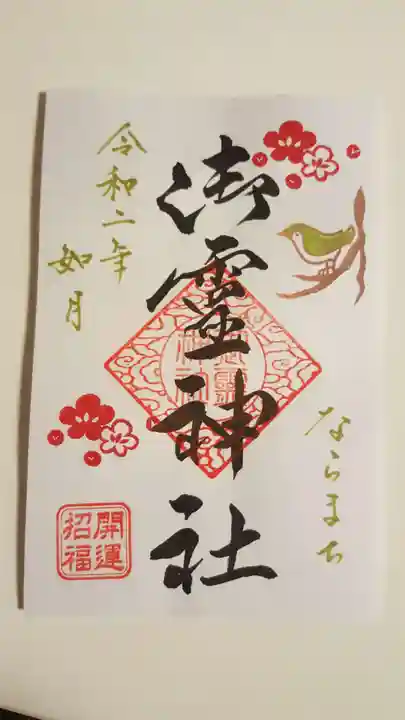 ならまち
御霊神社
御霊神社
令和二年
如月
開運
招福